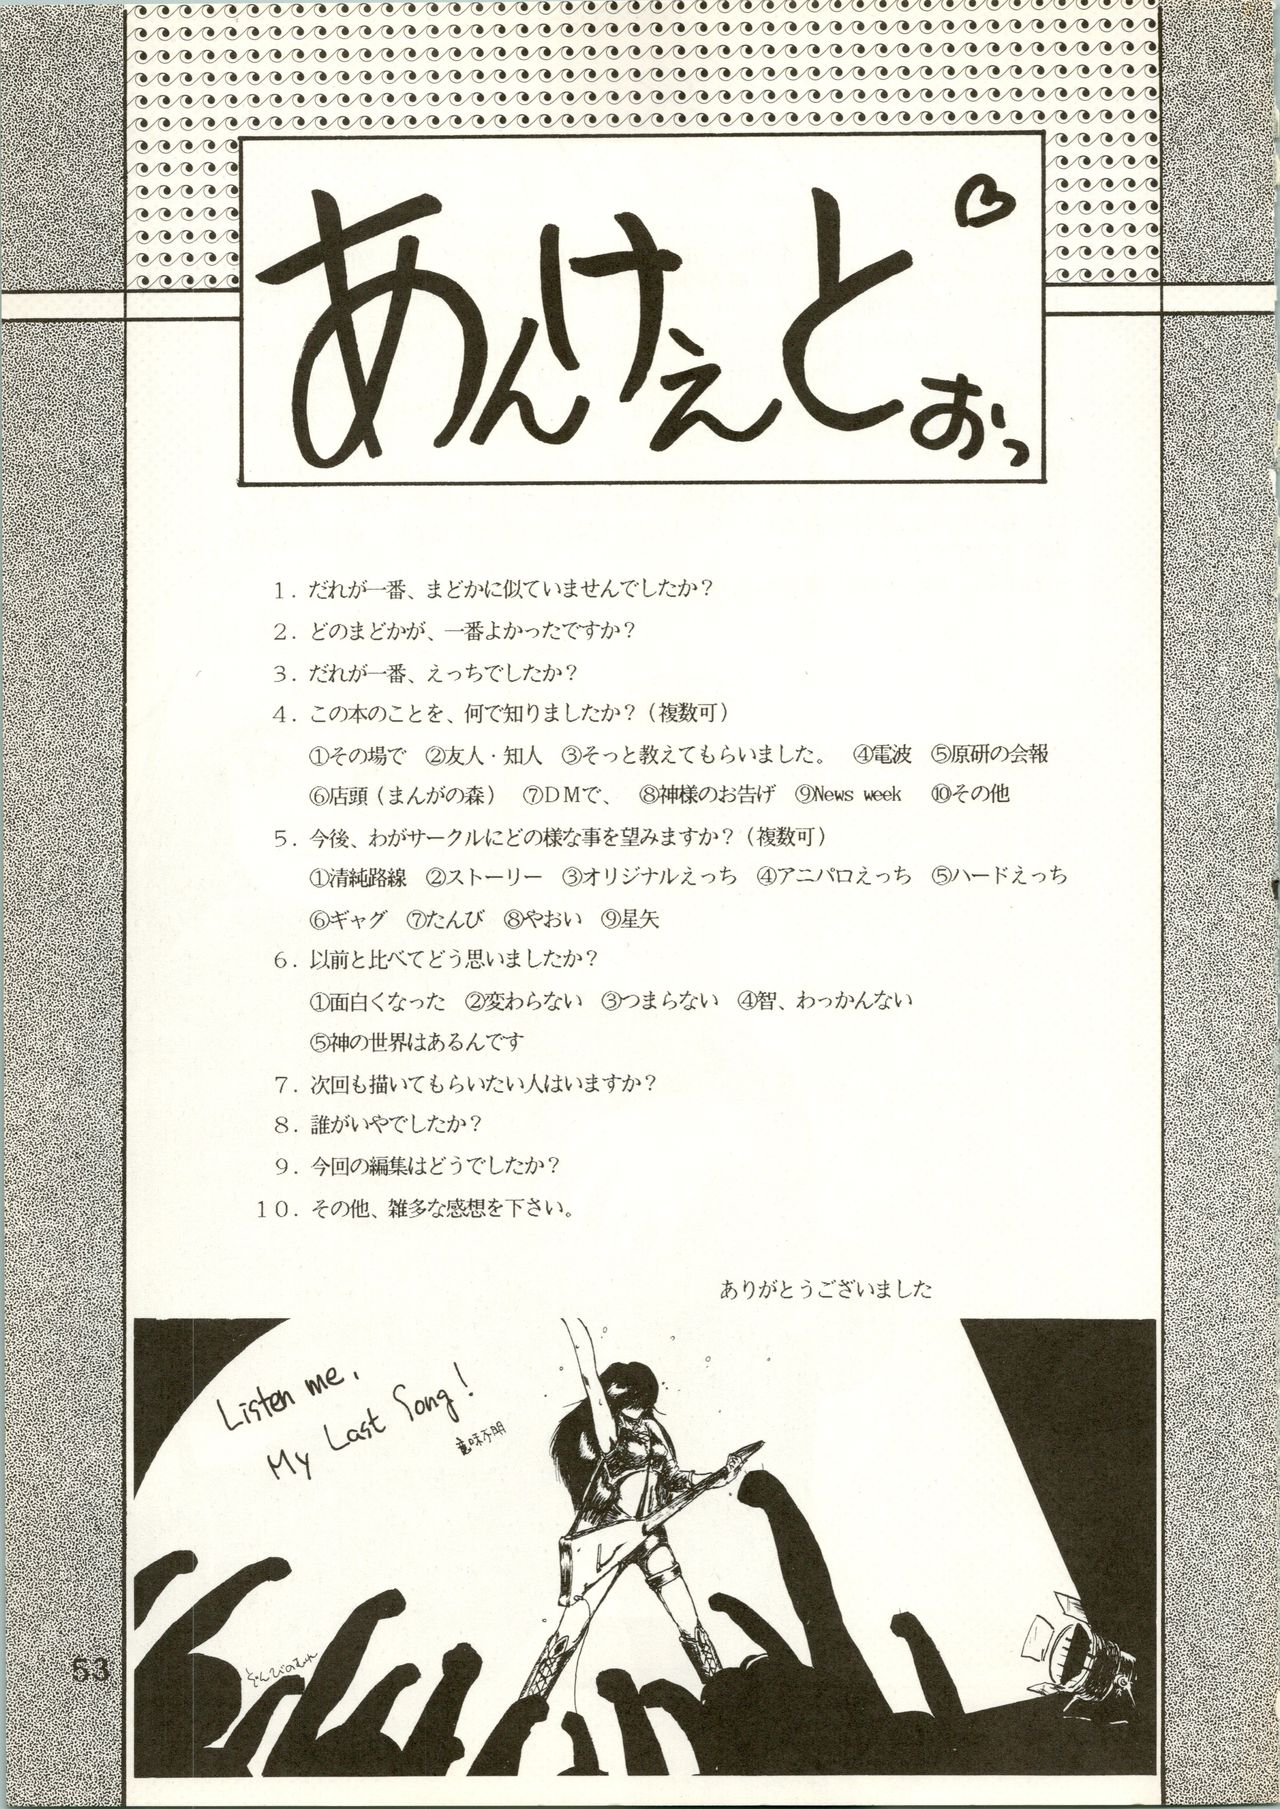 あんけぇとぉっ♡
１．だれが一番、まどかに似ていませんでしたか？
２．どのまどかが、一番よかったですか？
３．だれが一番、えっちでしたか？
４．この本のことを、何で知りましたか？（複数可）
①その場で　②友人・知人　③そっと教えてもらいました。　④電波　⑤原研の会報
⑥店頭（まんがの森）　⑦ＤＭで、　⑧神様のお告げ　⑨News week　⑩その他
５．今後、わがサークルにどの様な事を望みますか？（複数可）
①清純路線　②ストーリー　③オリジナルえっち　④アニパロえっち　⑤ハードえっち
⑥ギャグ　⑦たんび　⑧やおい　⑨星矢
６．以前と比べてどう思いましたか？
①面白くなった　②変わらない　③つまらない　④智、わっかんない
⑤神の世界はあるんです
７．次回も描いてもらいたい人はいますか？
８．誰がいやでしたか？
９．今回の編集はどうでしたか？
１０．その他、雑多な感想を下さい。
ありがとうございました
Listen me,
My Last Song!
意味不明
ぞんびのむれ
53